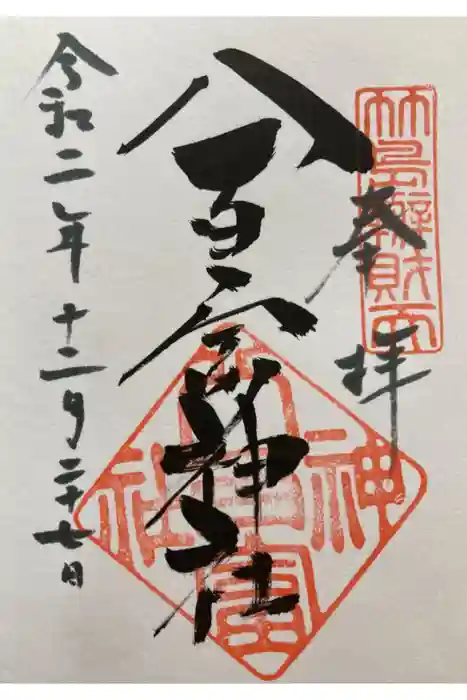 奉拝
竹島辨財天
八百富神社
八百富神社
令和二年十二月二十七日